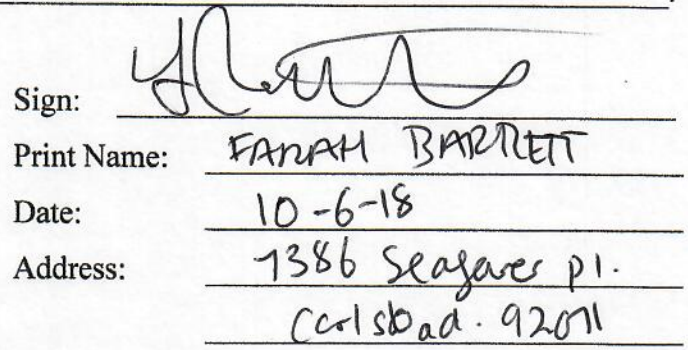 Sign:
Print Name: FARAH BARRETT
Date: 10-6-18
Address: 7386 Seafarer pl.
Carlsbad. 92011